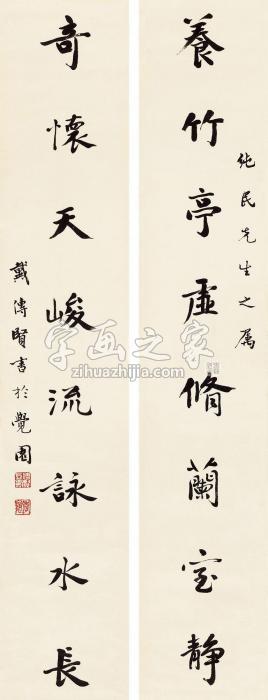 純民先生之属
養竹亭虛脩蘭室静
奇懷天峻流詠水長
戴傳賢書於覺園
字画之家
zihuazhijia.com